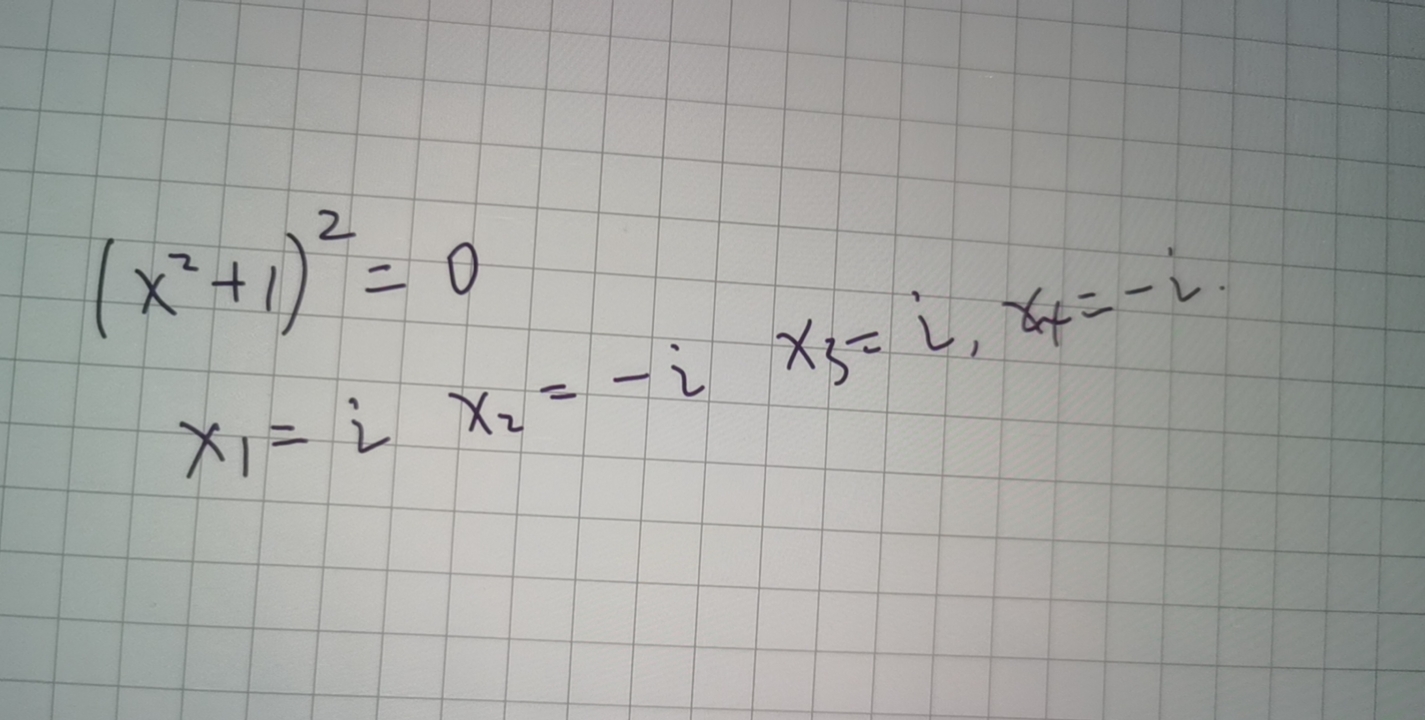 (x²+1)² = 0
x₁ = i x₂ = -i x₃ = i, x₄ = -i.